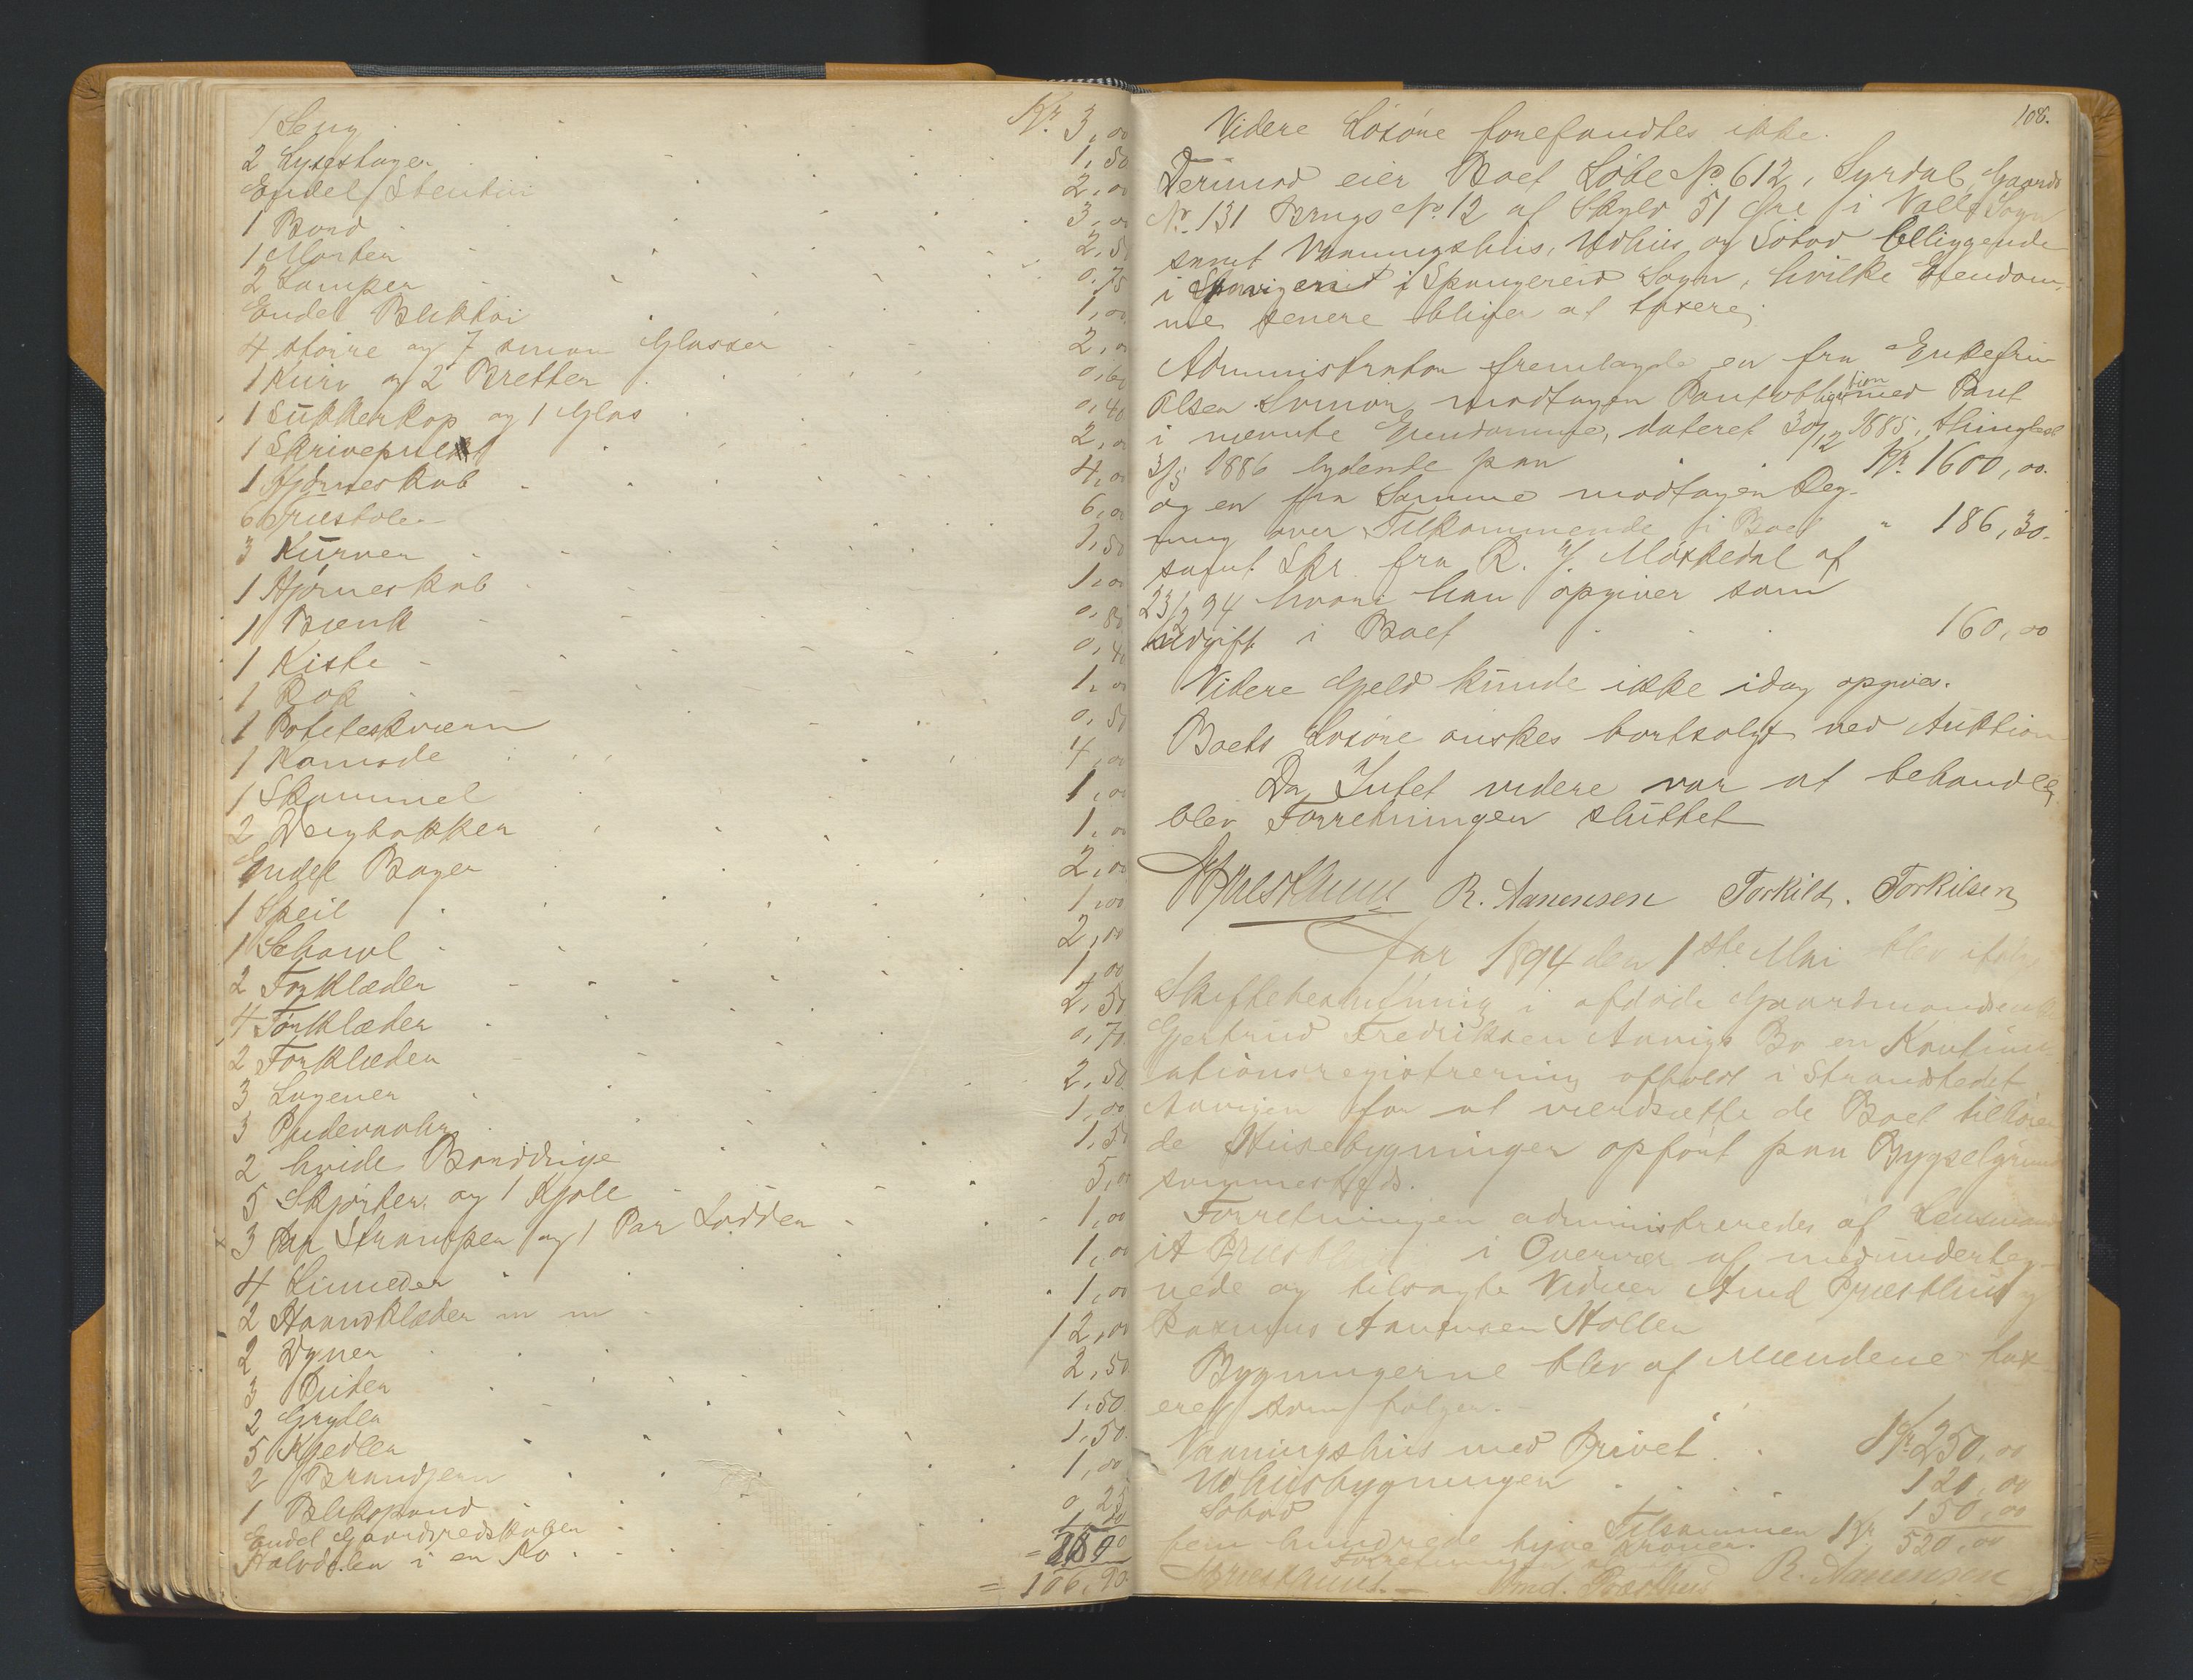 1 Seng Kr. 3,00
2 Lysestager 1,50
Endel Stentøi 2,00
1 Bord 3,00
1 Morter 2,50
2 Lamper 0,75
Endel Bliktøi 1,00
4 større og 7 smaa Glasser 2,00
1 Kurv og 2 Bretter 0,60
1 Sukkerkop og 1 Glas 0,40
1 Skrivepult 2,00
1 Hjørneskab 4,00
6 Stole 6,00
3 Kurver 1,50
1 Hjørneskab 1,00
1 Bænk 0,80
1 Kiste 0,40
1 Rok 1,00
1 Poteteskværn 0,50
1 Komode 4,00
1 Skammel 1,00
2 Deigbakker 1,00
Endel Bøger 2,00
1 Speil 1,00
1 Schawl 2,00
2 Forklæder 1,00
4 Tørklæder 2,50
2 Forklæder 0,70
3 Lagener 2,50
3 Pudevaar 1,00
2 hvide 1,50
5 Skjørter og 1 Kjole 5,00
3 Par Strømper og 1 Par Lodder 1,00
4 1,00
2 Haandklæder m m 1,00
2 Dyner 12,00
3 Puder 2,50
2 Gryder 1,50
5 Kjedler 1,50
2 Brandjern 1,00
1 Blikspand 0,25
Endel Gaardsredskaber
Halvdelen i en Ko
= 106,90
108.
Videre Løsøre forefandtes ikke.
Derimod eier Boet Løbe No. 612, Syrdal, Gaards
No. 131 Brugs No. 12 af Skyld 51 Øre i Valle Sogn
samt Vaaningshus, Udhus og Søbod beliggende
i Spangereid Sogn, hvilke Eiendom-
me senere bliver at taxere.
Administrator fremlagde en fra Enkefru
Olsen Svinør modtagen Pantobligation med Pant
i nævnte Eiendomme, dateret 30/12 1885, thinglæst
3/3 1886 lydende paa Kr. 1600,00.
og en fra Samme modtagen Reg-
ning over Tilkommende i Boet " 186,30.
samt Skr. fra R. J. af
23/2 94 hvori han opgiver som
Udgift i Boet 160,00
Videre Gjeld kunde ikke idag opgives.
Boets Løsøre ønskes bortsolgt ved Auktion
Da Intet videre var at behandle,
blev Forretningen sluttet
R. Aanensen Torkild. Torkilsen
Aar 1894 den 1ste Mai blev ifølge
Skiftebehandling i afdøde Gaardmandsenke
Gjertrud Fredriksen Aavigs Bo en Kontinu-
ationsregistrering afholdt i Strandstedet
Aavigen for at værdsætte de Boet tilhøren
de Husebygninger opført paa Bygselgrund
sammesteds.
Forretningen administreredes af Lensmand
A Præsthus i Overvær af medunderteg-
nede og tilsagte Vidner Amd Præsthus og
Rasmus Aanensen Hollen
Bygningerne blev af Mændene tax
eret som følger.
Vaaningshus med Privet Kr. 250,00
Udhusbygningen 120,00
Søbod 150,00
Tilsammen Kr 520,00
fem hundrede tyve Kroner.
Forretningen
Amd. Præsthus R. Aanensen